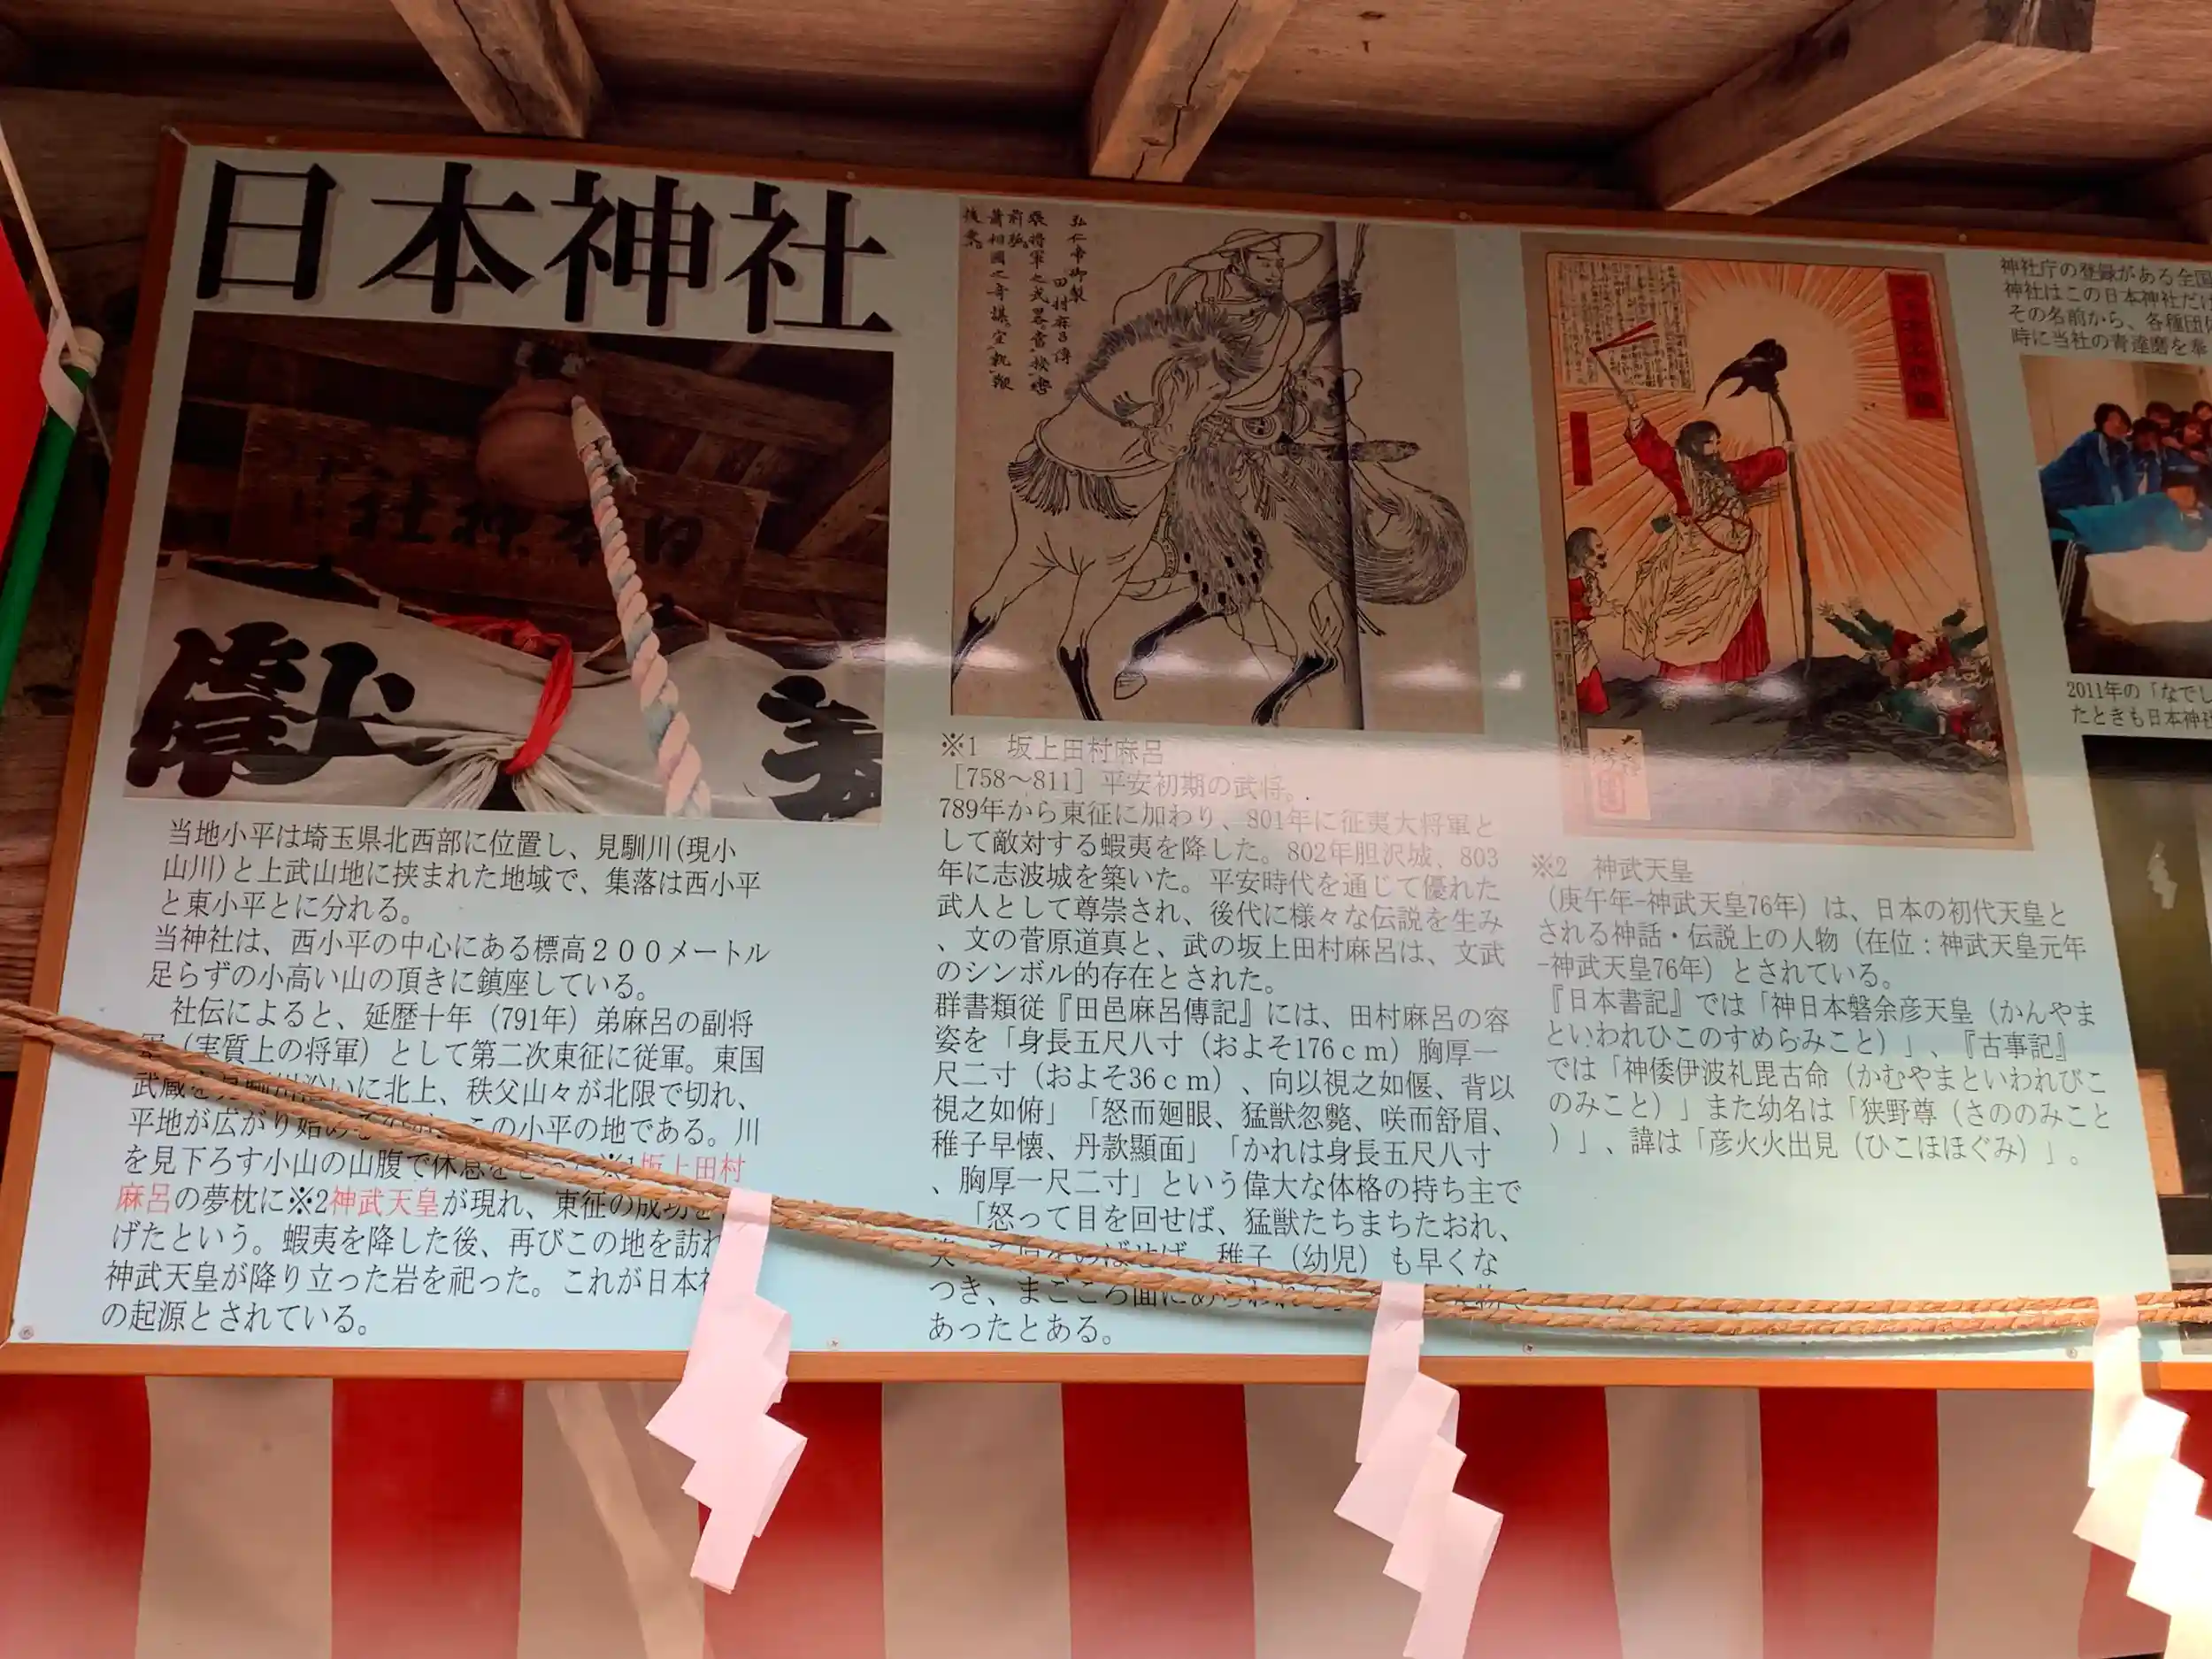 日本神社
日本神社
獻上
当地小平は埼玉県北西部に位置し、見馴川(現小
山川)と上武山地に挟まれた地域で、集落は西小平
と東小平とに分れる。
当神社は、西小平の中心にある標高２００メートル
足らずの小高い山の頂きに鎮座している。
社伝によると、延歴十年（791年）弟麻呂の副将
軍（実質上の将軍）として第二次東征に従軍。東国
武蔵を見馴川沿いに北上、秩父山々が北限で切れ、
平地が広がり始めるのが、この小平の地である。川
を見下ろす小山の山腹で休息をとった※1坂上田村
麻呂の夢枕に※2神武天皇が現れ、東征の成功を
げたという。蝦夷を降した後、再びこの地を訪れ
神武天皇が降り立った岩を祀った。これが日本神
の起源とされている。
弘仁帝御製
田村麻呂傳
張将軍之武略當扱轡
前駈
蕭相國之奇謀宜執鞭
後乗
※1　坂上田村麻呂
［758～811］平安初期の武将。
789年から東征に加わり、801年に征夷大将軍と
して敵対する蝦夷を降した。802年胆沢城、803
年に志波城を築いた。平安時代を通じて優れた
武人として尊崇され、後代に様々な伝説を生み
、文の菅原道真と、武の坂上田村麻呂は、文武
のシンボル的存在とされた。
群書類従『田邑麻呂傳記』には、田村麻呂の容
姿を「身長五尺八寸（およそ176ｃｍ）胸厚一
尺二寸（およそ36ｃｍ）、向以視之如偃、背以
視之如俯」「怒而廻眼、猛獣忽斃、咲而舒眉、
稚子早懐、丹款顯面」「かれは身長五尺八寸
、胸厚一尺二寸」という偉大な体格の持ち主で
「怒って目を回せば、猛獣たちまちたおれ、
笑って眉をのばせば、稚子（幼児）も早くな
つき、まごころ面にあらわれる
あったとある。
※2　神武天皇
（庚午年-神武天皇76年）は、日本の初代天皇と
される神話・伝説上の人物（在位：神武天皇元年
-神武天皇76年）とされている。
『日本書記』では「神日本磐余彦天皇（かんやま
といわれひこのすめらみこと）」、『古事記』
では「神倭伊波礼毘古命（かむやまといわれびこ
のみこと）」また幼名は「狭野尊（さののみこと
）」、諱は「彦火火出見（ひこほほぐみ）」。
神社庁の登録がある全国
神社はこの日本神社だけ
その名前から、各種団体
時に当社の青達磨を奉
2011年の「なでし
たときも日本神社